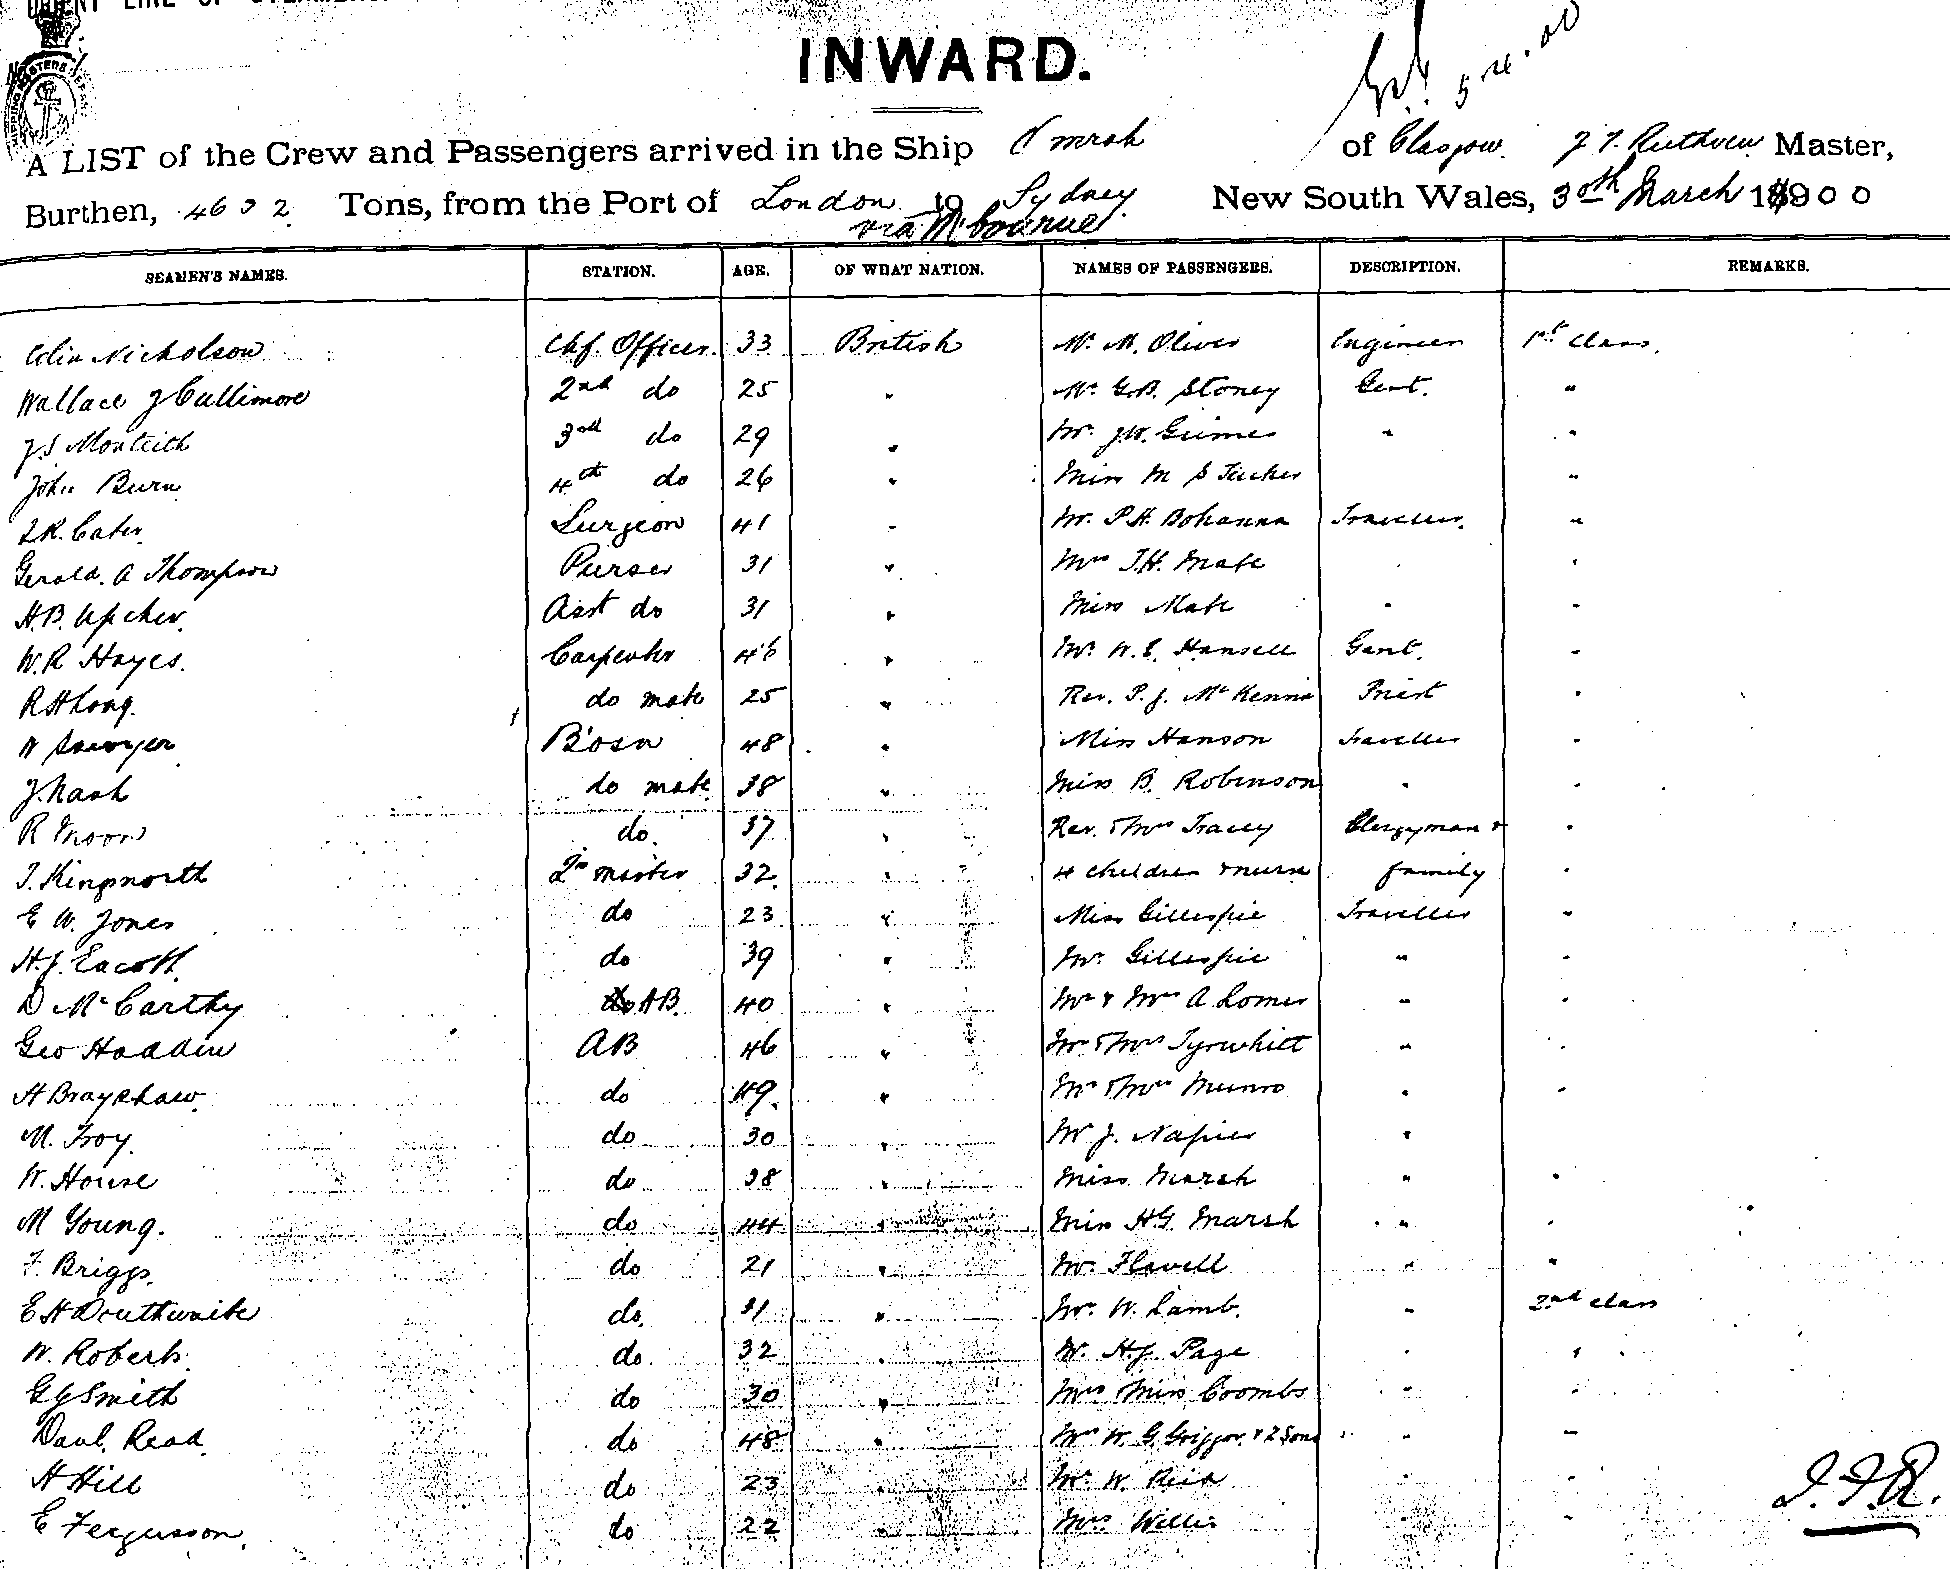 ORIENT LINE OF STEAMERS.
INWARD.
A LIST of the Crew and Passengers arrived in the Ship Omrah of Glasgow. J. F. Ruthven Master,
Burthen, 4632 Tons, from the Port of London to Sydney New South Wales, 30th March 1900
via Mbourne
SEAMEN'S NAMES. STATION. AGE. OF WHAT NATION. NAMES OF PASSENGERS. DESCRIPTION. REMARKS.
Colin Nicholson Chf. Officer. 33 British Mr. M. Oliver Engineer 1st Class.
Wallace J Cullimore 2nd do 25 " Mr. G.B. Stoney Gent. "
J S Monteith 3rd do 29 " Mr. J.W. Grimes " "
John Burn 4th do 26 " Miss M S Tucker "
Surgeon 41 " Mr. P.H. Bohanna Traveller. "
Gerald. A Thompson Purser 31 " Mrs J.H. Mate " "
H.B. Upcher. Asst do 31 " Miss Mate " "
W.R Hayes. Carpenter 46 " Mr. W.E. Hansell Gent. "
R H Long. do mate 25 " Rev. P.J. McKenna Priest "
W Sawyer Bosn 48 " Miss Hanson Traveller "
J. Nash do mate 38 " Miss B. Robinson " "
R Moon do. 37 " Rev. & Mrs Tracey Clergyman & "
J. Kingsnorth Qr master 32 " 4 children & nurse family "
E W. Jones do 23 " Miss Gillespie Traveller "
H.J. Eacott do 39 " Mr. Gillespie " "
D McCarthy AB. 40 " Mr & Mrs A Lomer " "
Geo Hadden AB 46 " Mr & Mrs Tyrwhitt " "
H Brayshaw. do 49. " Mr & Mrs Munro " "
M. Troy. do 30 " Mr J. Napier "
W. House do 38 " Miss Marsh " "
M Young. do 44 " Miss H G Marsh " "
F. Briggs. do 21 " Mr. Flavell " "
E H Douthwaite do. 31 " Mr. W. Lamb. " 2nd Class
W. Roberts. do. 32 " Mr. H.J. Page " "
G G Smith do 30 " Mrs & Miss Coombs " "
Danl. Read. do 48 " Mrs W. G. & 2 Sons " "
H Hill do 23 " Mr. W. Reid " "
E Fergusson. do 22 " Mrs Willis " "
J.F.R.